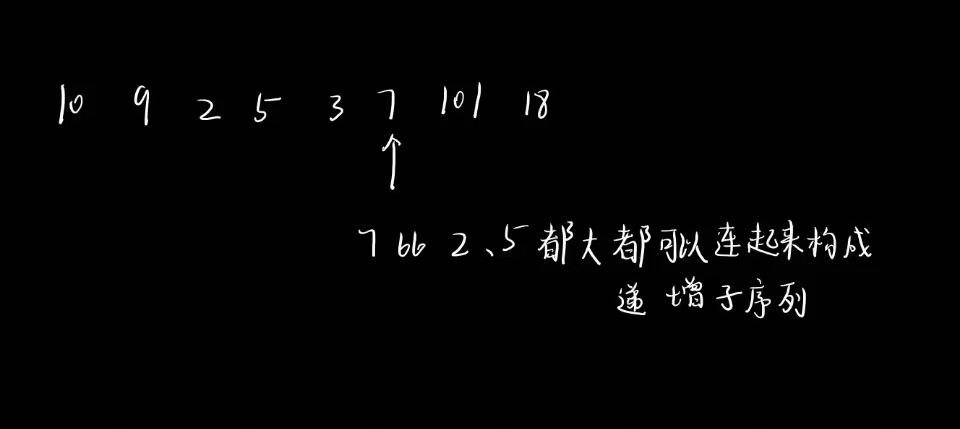 10 9 2 5 3 7 101 18
7 比 2、5 都大都可以连起来构成
递增子序列